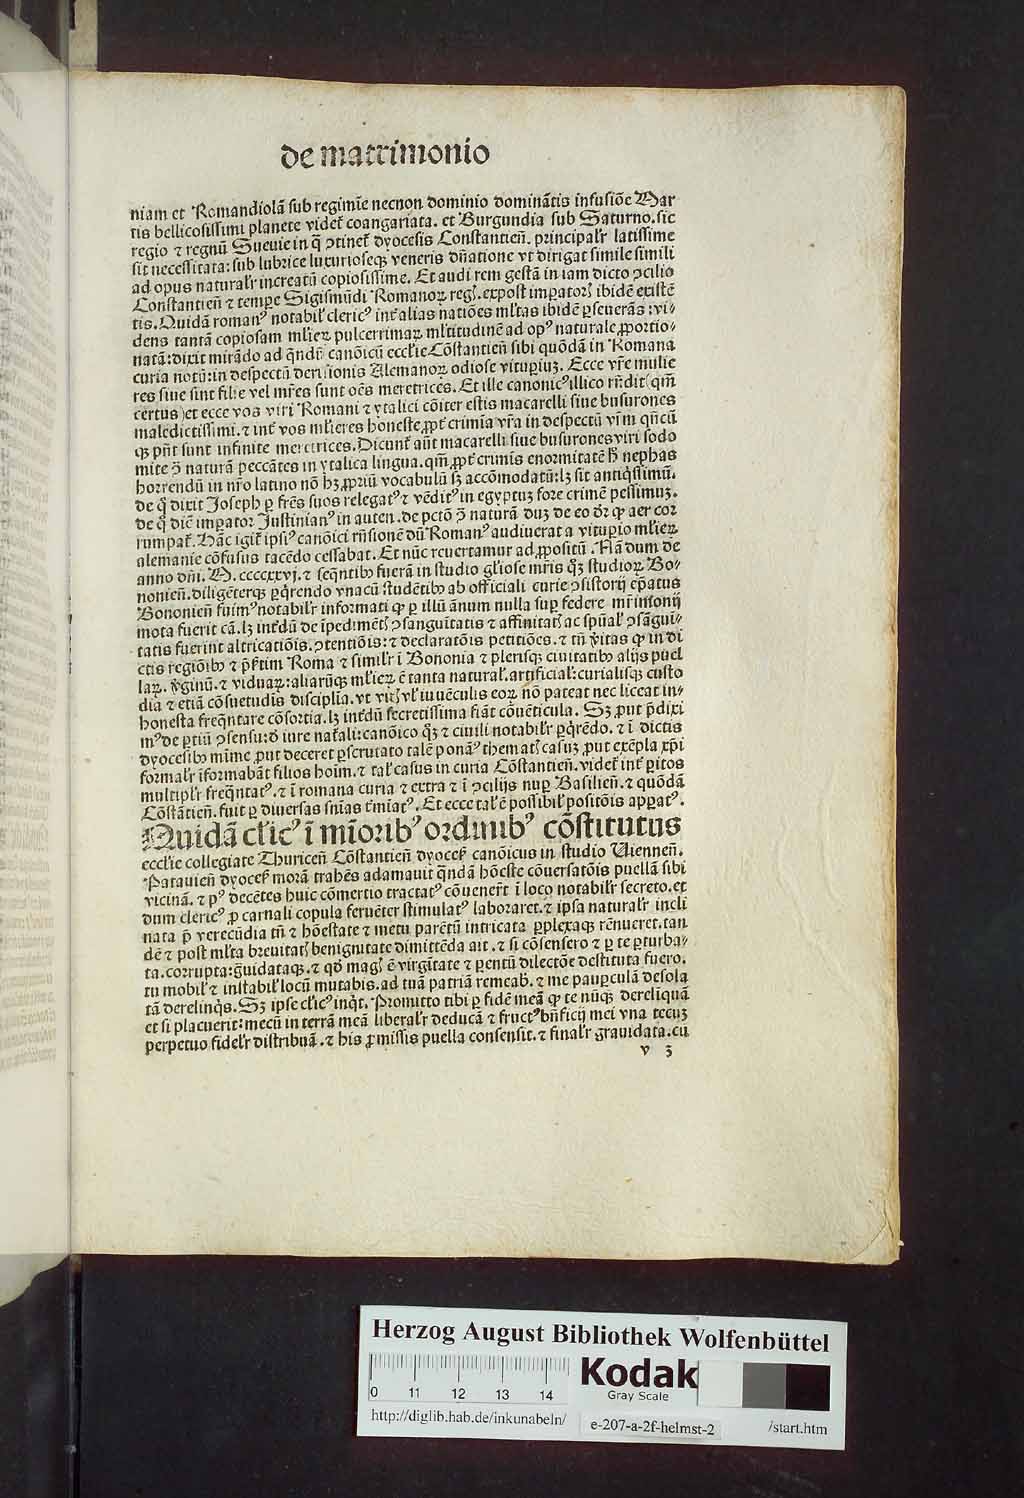 de matrimonio
niam et Romandiolā sub regimīe necnon dominio dominātis infusiōe Mar
tis bellicosissimi planete videt᷒ coangariata. et Burgundia sub Saturno. sic
regio ⁊ regnū Sueuie in q̄ ꝯtinet᷒ dyocesis Constantien̄. principalr̄ latissime
sit necessitata: sub lubrice luxurioseqꝫ veneris dn̄atione vt dirigat simile simili
ad opus naturalr̄ increatū copiosissime. Et audi rem gestā in iam dicto ꝯcilio
Constantien̄ ⁊ tempe Sigismūdi Romanoꝝ reg᷒. expost impator᷒ ibidē existē
tis. Quidā romanꝰ notabil᷒ clericꝰ int᷒ alias natiōes ml̄tas ibidē ꝑseuerās: vi-
dens tantā copiosam ml̓ieꝝ pulcerrimaꝝ ml̄titudinē ad opꝰ naturale ꝓportio-
natā: dixit mirādo ad q̄ndā canōicū eccl̓ie Cōstantien̄ sibi quōdā in Romana
curia notū: in despectū derisionis Alemanoꝝ odiose vitupiuꝫ. Ecce vr̄e mulie
res siue sint filie vel mr̄es sunt oēs meretrices. Et ille canonicꝰ illico rn̄dit (qm̄
certus) et ecce vos viri Romani ⁊ ytalici cōiter estis macarelli siue busurones
maledictissimi. ⁊ int᷒ vos ml̓ieres honeste ꝓpt᷒ crimīa vr̄a in despectū vr̄m qn̄cū
qꝫ pn̄t sunt infinite meretrices. Dicunt᷒ aūt macarelli siue busurones viri sodo
mite ꝯ̄ naturā peccātes in ytalica lingua. qm̄ ꝓpt᷒ crimīs enormitatē h᷒ nephas
horrendū in nr̄o latino nō hꝫ ꝓpriū vocabulū sꝫ accōmodatū: lꝫ sit antiq̄ssimū.
de q̄ dixit Joseph ꝑ fr̄es suos relegatꝰ ⁊ vēditꝰ in egyptuꝫ fore crimē pessimuꝫ.
de q̄ dic̄ impator Justinianꝰ in auten. de pctō ꝯ̄ naturā duꝫ de eo dr̄ ꝙ aer cor
rumpat᷒. Hāc igit᷒ ipsiꝰ canōici rn̄sionē dū Romanꝰ audiuerat a vitupio ml̓ieꝝ
alemanie cōfusus tacēdo cessabat. Et nūc reuertamur ad ꝓpositū. Nā dum de
anno dn̄i. M. ccccxxvj. ⁊ seq̄ntibꝰ fuerā in studio gl̓iose mr̄is qꝫ studioꝝ Bo-
nonien̄. diligēterqꝫ ꝑq̄rendo vnacū studētibꝰ ab officiali curie ꝯsistorij ep̄atus
Bononien̄ fuimꝰ notabilr̄ informati ꝙ ꝑ illū ānum nulla suꝑ federe mr̄imonij
mota fuerit cā. lꝫ int᷒dū de īpedimēt᷒ ꝯsanguītatis ⁊ affinitat᷒ ac spūal᷒ ꝯsāgui-
tatis fuerint altricatiōis. ꝯtentiōis: ⁊ declaratōis petitiōes. ⁊ tn̄ v̄itas ꝙ in di
ctis regiōibꝰ ⁊ p̄f᷒tim Roma ⁊ simil᷒r ī Bononia ⁊ plerisqꝫ ciuitatibꝰ alijs puel
laꝝ. v̄ginū. ⁊ viduaꝝ: aliarūqꝫ ml̓ieꝝ ē tanta natural᷒. artificial᷒: curialisqꝫ custo
dia ⁊ etiā cōsuetudīs disciplīa. vt vir᷒ vl̓ iuuēculis eoꝝ nō pateat nec liceat in-
honesta freq̄ntare cōsortia. lꝫ int᷒dū secretissima fiāt cōuēticula. Sꝫ ꝓut p̄dixi
mꝰ de ꝑtiū ꝯsensu: d̓ iure nat᷒ali: canōico qꝫ ⁊ ciuili notabilr̄ ꝑq̄rēdo. ⁊ ī dictis
dyocesibꝰ mīme ꝓut deceret ꝑscrutato talē ponāꝰ themat᷒ casuꝫ ꝓut exēpla xp̄i
formalr̄ īformabāt filios hoīm. ⁊ tal᷒ casus in curia Cōstantien̄. videt᷒ int᷒ ꝑitos
multiplr̄ freq̄ntatꝰ. ⁊ ī romana curia ⁊ extra ⁊ ī ꝯcilijs nuꝑ Basilien̄. ⁊ quōdā
Cōstātien̄. fuit ꝑ diuersas sn̄ias t᷒miatꝰ. Et ecce tal᷒ ē possibil᷒ positōis appatꝰ.
Quidā cl̓icꝰ ī mīoribꝰ ordinibꝰ cōstitutus
eccl̓ie collegiate Thuricen̄ Cōstantien̄ dyoces᷒ canōicus in studio Uiennen̄.
Patauien̄ dyoces᷒ morā trahēs adamauit q̄ndā hōeste cōuersatōis puellā sibi
vicinā. ⁊ pꝰ decētes huic cōmertio tractatꝰ cōuenerūt ī loco notabilr̄ secreto. et
dum clericꝰ ꝓ carnali copula feruēter stimulatꝰ laboraret. ⁊ ipsa naturalr̄ incli
nata p̄ verecūdia tn̄ ⁊ hōestate ⁊ metu parētū intricata ꝑplexaqꝫ rēnueret. tan
dē ⁊ post ml̄ta breuitat᷒ benignitate dimittēda ait. ⁊ si cōsensero ⁊ ꝑ te ꝑturba-
ta. corrupta: grauidataqꝫ. ⁊ qd̓ mag᷒ ē virgītate ⁊ ꝑentū dilectōe destituta fuero.
tu mobil᷒ ⁊ instabil᷒ locū mutabis. ad tuā patriā remeab᷒. ⁊ me pauꝑculā desola
tā derelinq̄s. Sꝫ ipse cl̓icꝰ inq̄t. Promitto tibi ꝑ fidē meā ꝙ te nūqꝫ derelīquā
et si placuerit: mecū in terrā meā liberalr̄ deducā ⁊ fructꝰ bn̄ficij mei vna tecuꝫ
perpetuo fidelr̄ distribuā. ⁊ his ꝓmissis puella consensit. ⁊ finalr̄ grauidata. cū
v 3
Herzog August Bibliothek Wolfenbüttel
0 11 12 13 14
Kodak
Gray Scale
http://diglib.hab.de/inkunabeln/ e-207-a-2f-helmst-2 /start.htm